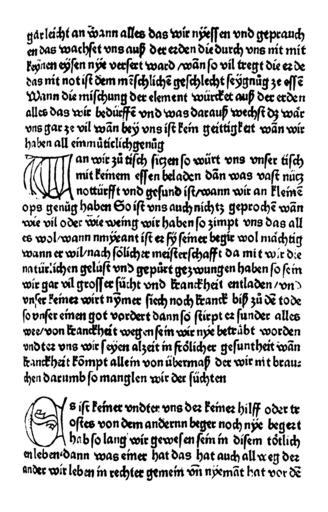 gar leicht an wann alles das wir nyessen vnd geprauch
en das wachset vns auß der erden die durch vns nit mit
keynen eysen nye versert ward/wān so vil tregt die erde
das nit not ist dem mēschlichē geschlecht seygnüg ze essē
Wann die mischung der element würcket auß der erden
alles das wir bedürffen vnd was darauß wechst dz wār
vns gar ze vil wān bey vns ist kein geittigkeit wān wir
haben all einmüticlich genüg
Wan wir zü tisch siczen so würt vns vnser tisch
mit keinem essen beladen dān was vast nücz
notturfft vnd gesund ist/wann wir an kleinē
ops genüg haben So ist vns auch nichtz geprochē wān
wie vil oder wie weing wir haben so zimpt vns das all
es wol/wann nmyeant ist er sy seiner begir wol māchtig
wann er wil/nach sölicher meisterschafft da mit wir die
natürlichen gelüst vnd gepürt gezwungen haben so sein
wir gar vil grosser sücht vnd kranckheit entladen/vn
vnser keiner wirt nymer siech noch kranck biß zü dē tode
so vnser einen got vordert dann so stirpt er sunder alles
wee/von kranckheit wegen sein wir nye betrübt worden
vndter vns wir seyen alzeit in frölicher gesuntheit wān
kranckheit kōmpt allein von übermaß der wir nit brau-
chen darumb so manglen wir der süchten
Es ist keiner vndter vns der keiner hilff oder tr
ostes von dem andernn beger noch nye begert
hab so lang wir gewesen sein in disem tötlich
en leben dann was einer hat das hat auch all weg der
ander wir leben in rechter gemein vn nyemāt hat vor dē